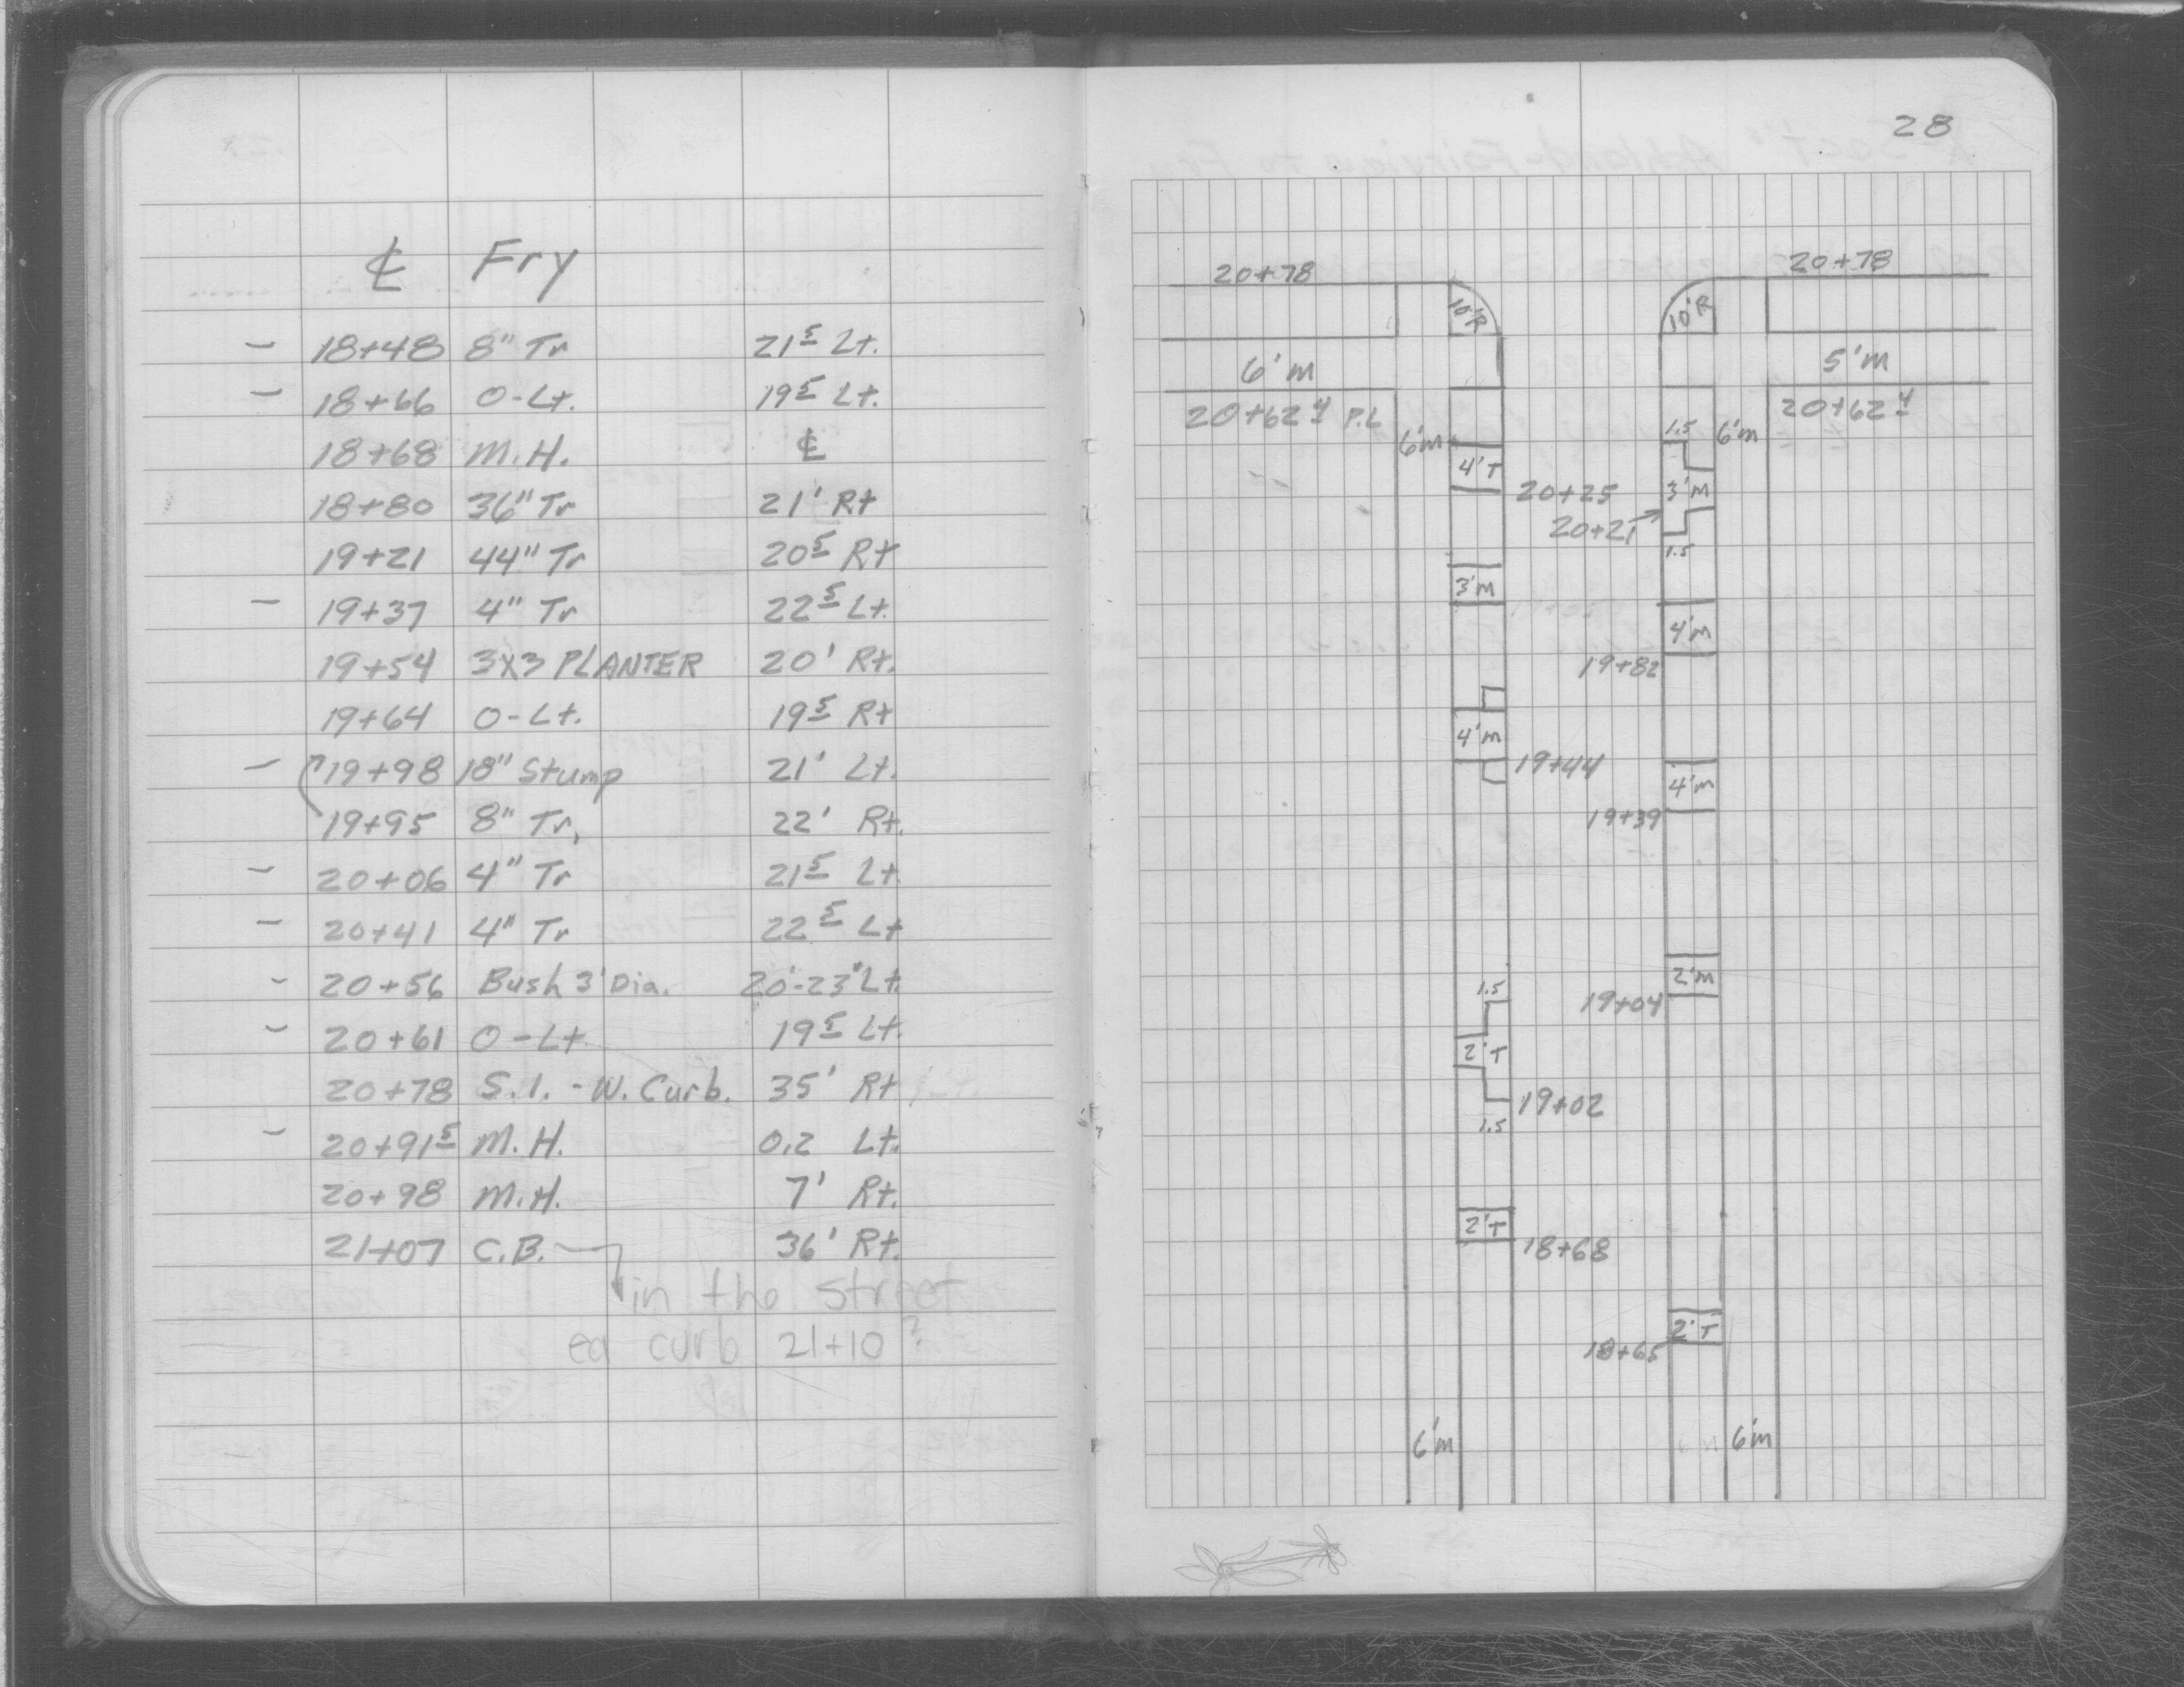 ℄ Fry
- 18+48 8" Tr 21⁵ Lt.
- 18+66 O-Lt. 19⁵ Lt.
18+68 M.H. ℄
18+80 36" Tr 21' Rt
19+21 44" Tr 20⁵ Rt
- 19+37 4" Tr 22⁵ Lt.
19+54 3x3 PLANTER 20' Rt.
19+64 O-Lt. 19⁵ Rt
- 19+98 18" Stump 21' Lt.
19+95 8" Tr. 22' Rt.
- 20+06 4" Tr 21⁵ Lt.
- 20+41 4" Tr 22⁵ Lt
- 20+56 Bush 3' Dia. 20'-23' Lt.
- 20+61 O-Lt. 19⁵ Lt.
20+78 S.I. - W. Curb. 35' Rt
- 20+91⁵ M.H. 0.2 Lt.
20+98 M.H. 7' Rt.
21+07 C.B. 36' Rt.
in the street
ea curb 21+10?
28
20+78 20+78
10'R 10'R
6'm 5'm
20+62⁴ P.L 20+62⁴
6'm 1.5 6'm
4'T
20+25 3'm
20+21
1.5
3'm
4'm
19+82
4'm
19+44
4'm
19+39
2'm
1.5
19+04
2'T
19+02
1.5
2'T
18+68
2'T
18+65
6'm 6'm